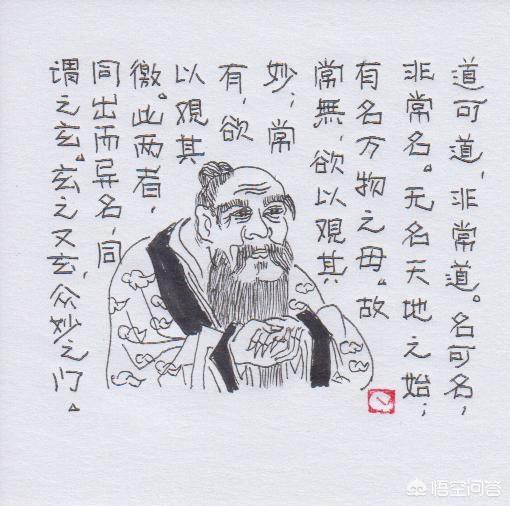 道可道，非常道。名可名，
非常名。无名天地之始；
有名万物之母。故
常無，欲以觀其
妙；常
有，欲
以觀其
徼。此两者，
同出而异名，同
谓之玄。玄之又玄，众妙之门。
悟空问答